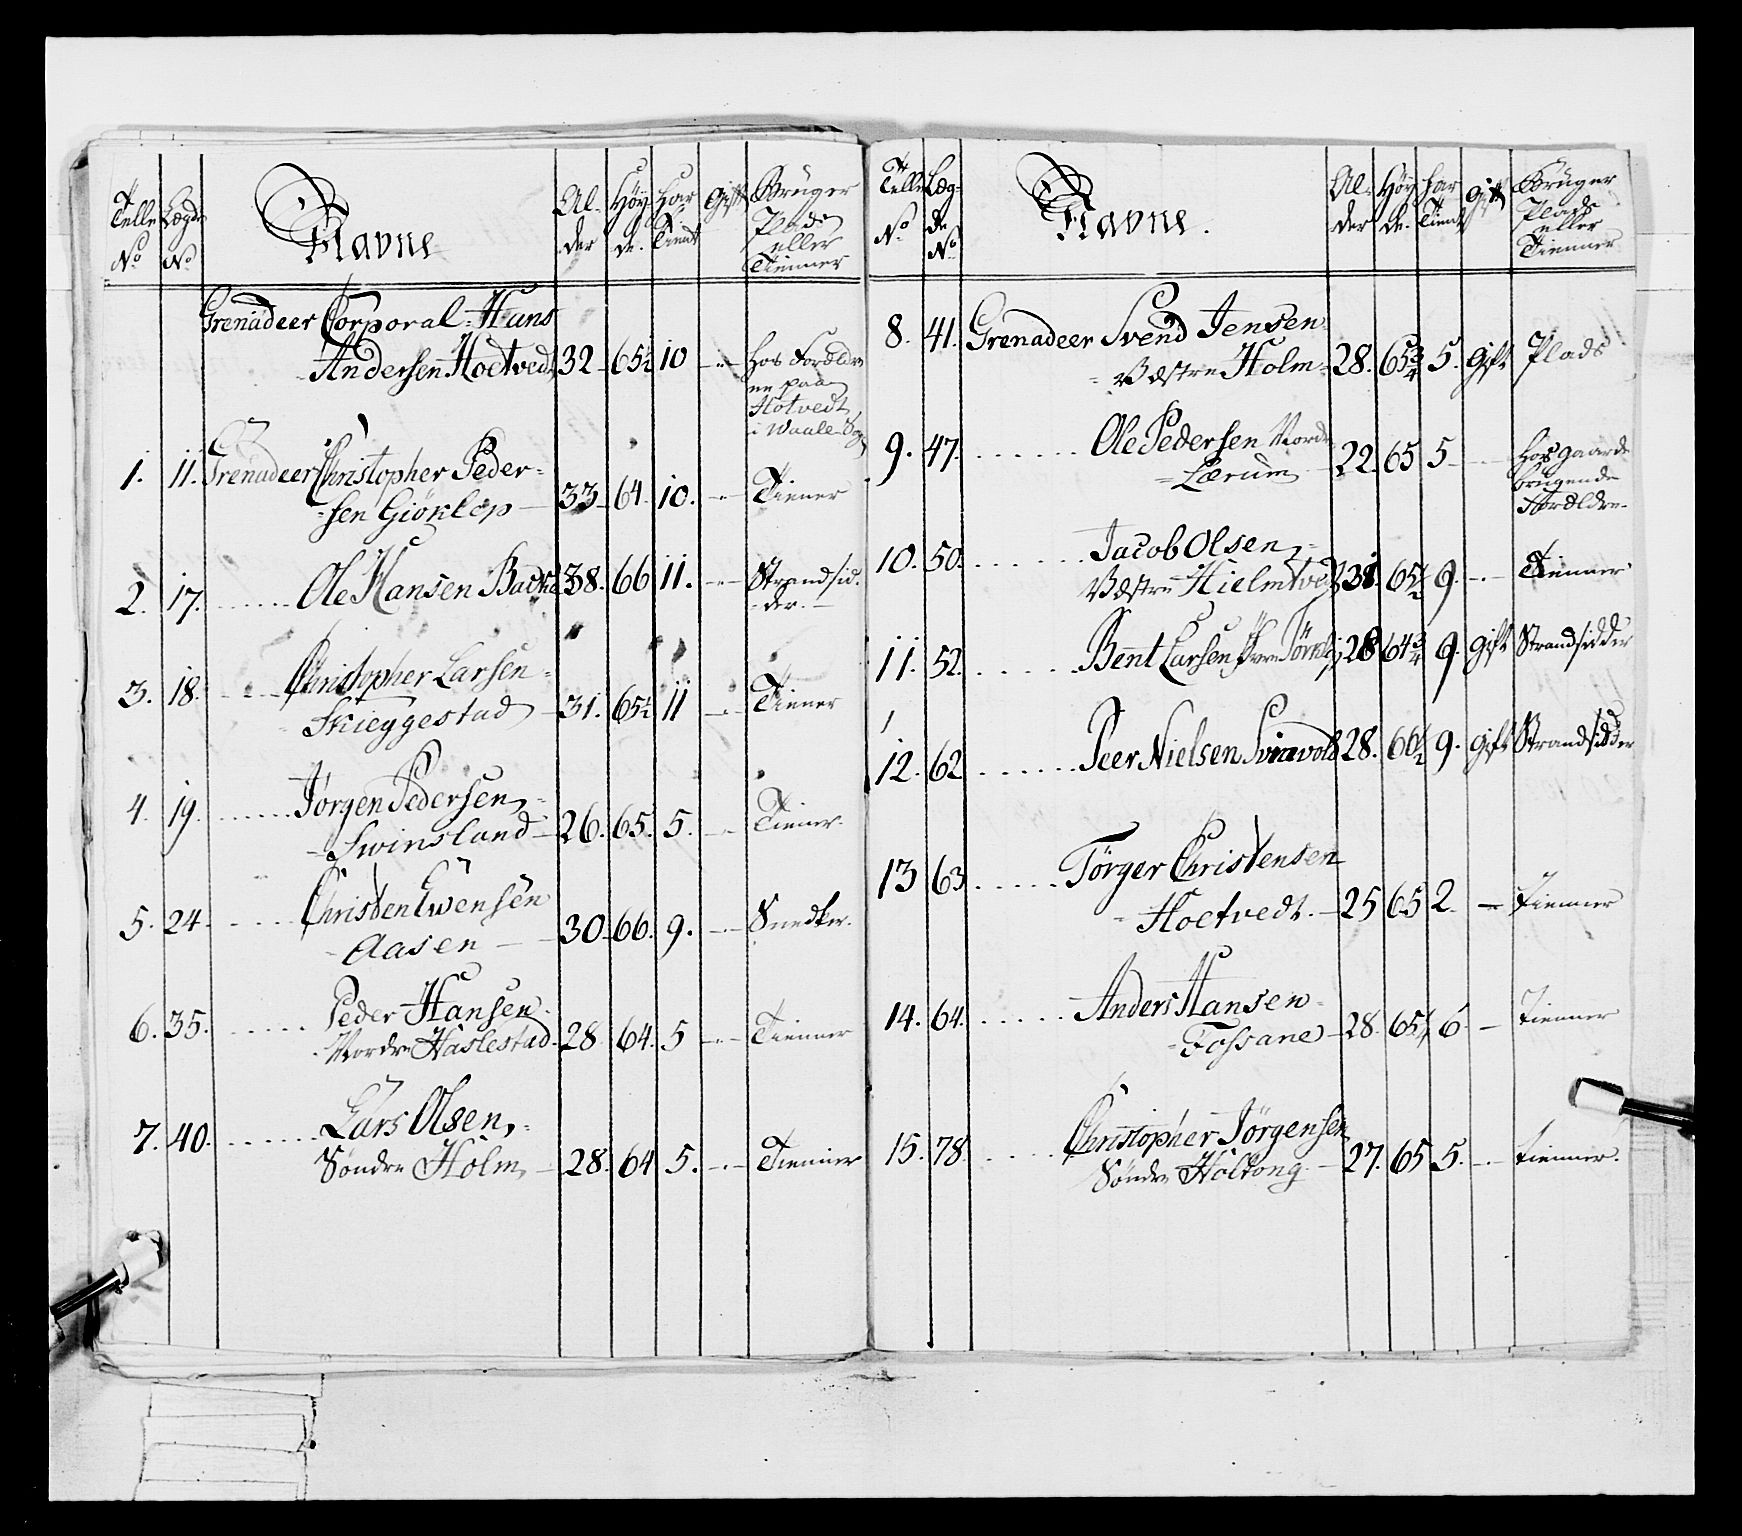 Telle No | Lægds No | Navne | Al-der | Høy-de. | Har Tient | Gift | Bruger Plads eller Tienner
Grenadeer Corporal Hans
Andersen Hoetvedt | 32 | 65½ | 10 | -"- | hos Forældre
ne paa
Hotvedt
i Waale Sog
1. | 11. | Grenadeer Christopher Peder-
sen Giöklep | 33 | 64. | 10. | -"- | Tiener
2. | 17. | Ole Hansen Backe | 38. | 66 | 11. | -"- | Strandsid-
der.
3. | 18. | Christopher Larsen
Skieggestad | 31. | 65½ | 11 | -"- | Tienner
4. | 19. | Jørgen Pedersen
Swinsland | 26. | 65. | 5. | -"- | Tienner.
5. | 24. | Christen Ewensen
Aasen | 30 | 66. | 9. | -"- | Snedker.
6. | 35. | Peder Hansen
Nordre Haslestad | 28 | 64. | 5 | -"- | Tienner
7. | 40. | Lars Olsen
Söndre Holm | 28. | 64 | 5. | -"- | Tienner
Telle No | Læg-de No | Navne. | Al-der | Høy-de. | Har Tient | Gift | Bruger Plads eller Tienner
8. | 41. | Grenadeer Svend Jensen
Væstre Holm | 28. | 65¾ | 5. | Gift | Plads
9. | 47. | Ole Pedersen Nordre
Lærum | 22. | 65 | 5 | - | hos gaard
brugende
Forældre
10. | 50. | Jacob Olsen
Væstre Hielmtvedt | 31. | 65½ | 9. | -"- | Tienner
11. | 52. | Bent Larsen | 28 | 64¾ | 9. | Gift | Strandsidder
12. | 62 | Peer Nielsen Svinevold | 28. | 66½ | 9. | Gift | Strandsidder
13 | 63 | Törger Christensen
Hoetvedt. | 25 | 65 | 2. | - | Tienner
14. | 64. | Anders Hansen
Fossane | 28. | 65½ | 6 | - | Tienner
15. | 78. | Christopher Jörgensen
Söndre Holtong | 27. | 65 | 5. | -"- | tienner.